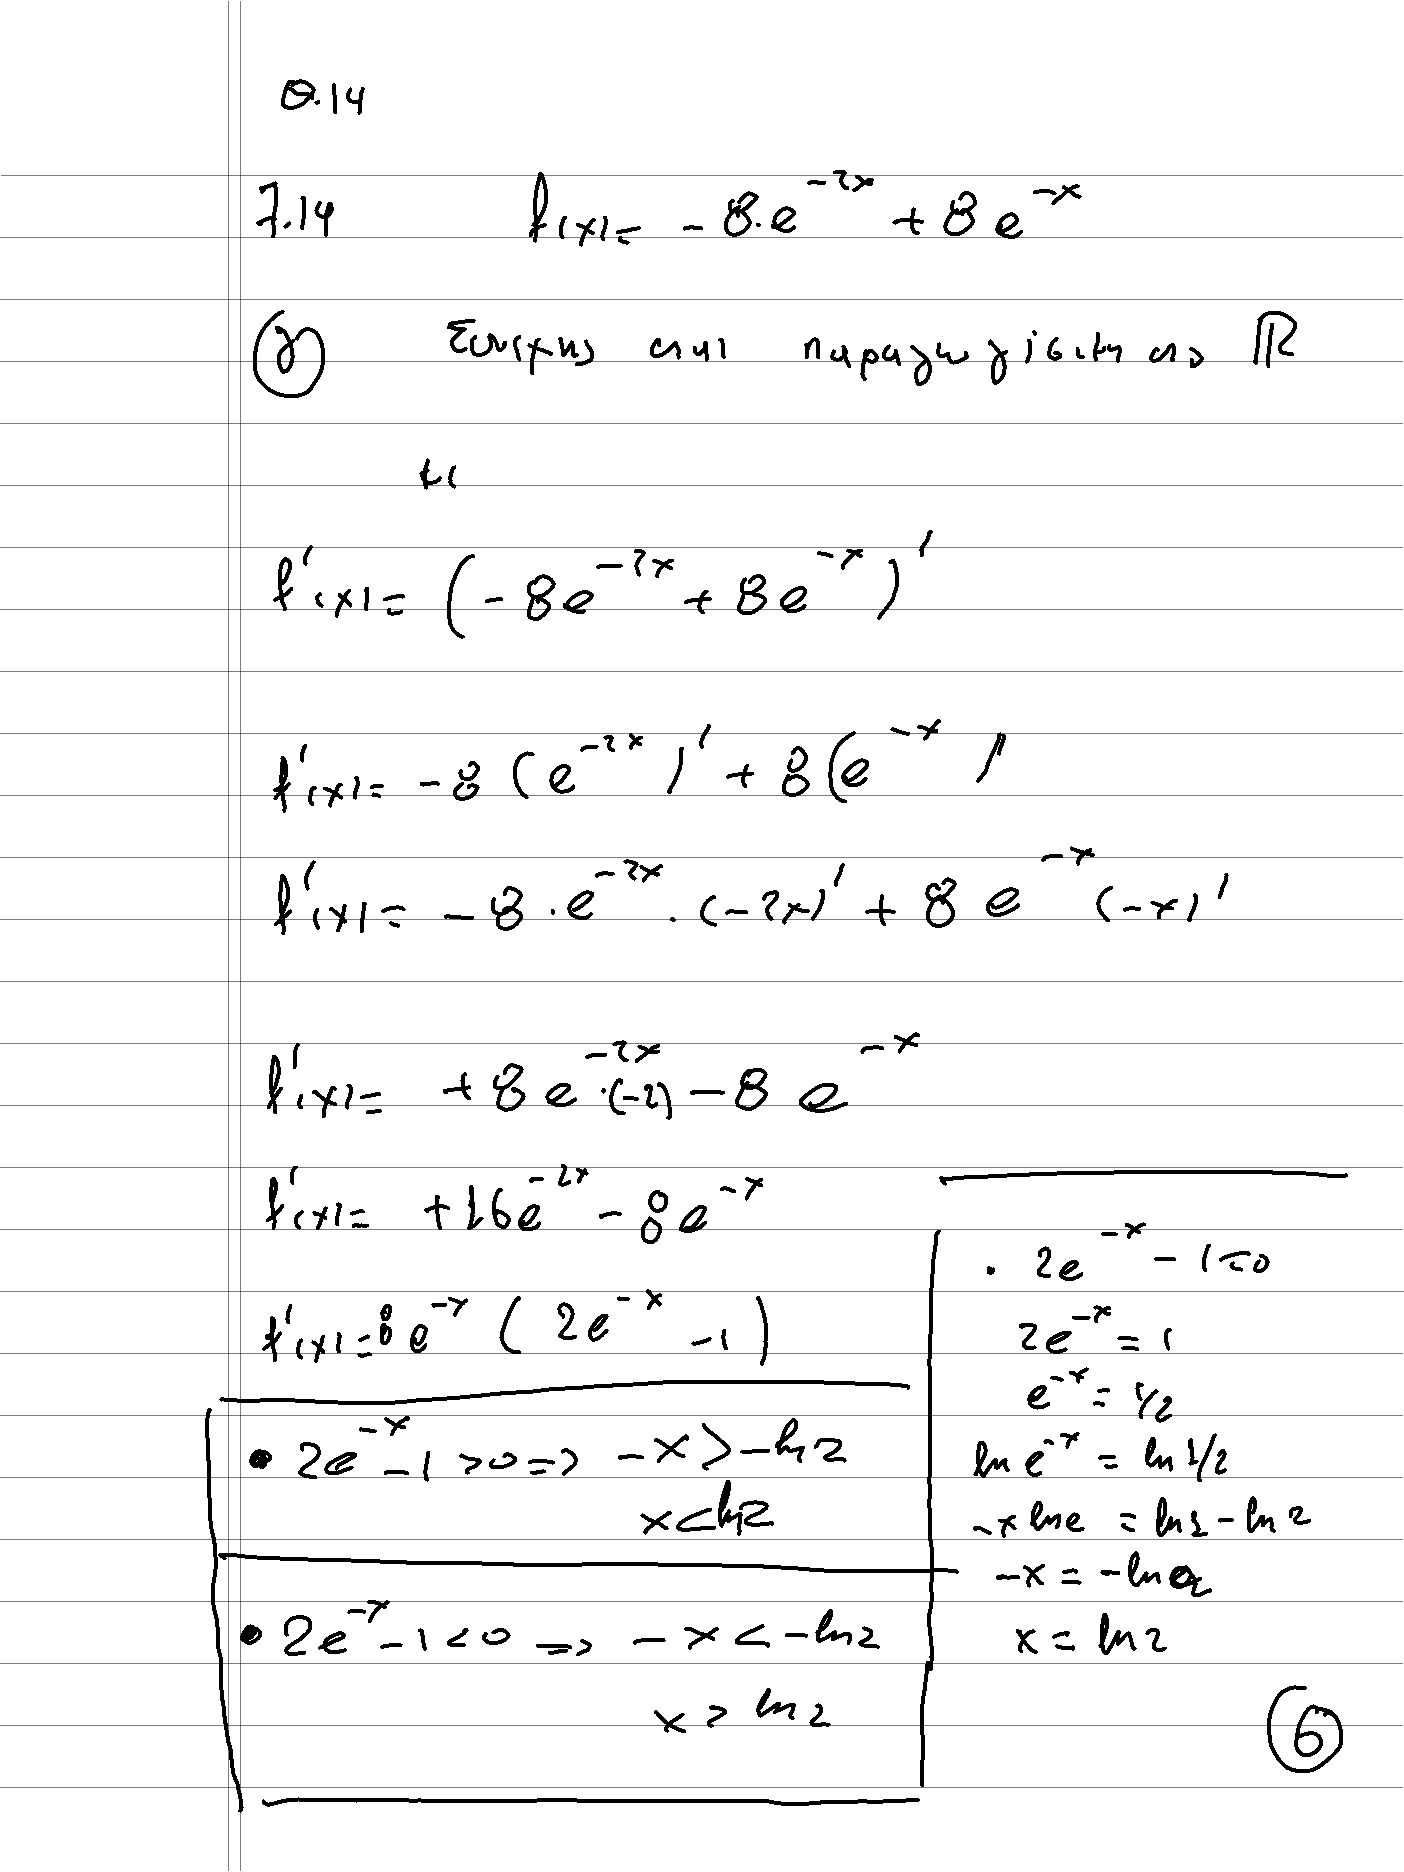 Θ.14
7.14 f(x)= -8·e^{-2x} + 8e^{-x}
γ Συνεχης και παραγωγισιμη στο ℝ
f'(x)= (-8e^{-2x} + 8e^{-x})'
f'(x)= -8(e^{-2x})' + 8(e^{-x})'
f'(x)= -8·e^{-2x}·(-2x)' + 8e^{-x}(-x)'
f'(x)= +8e^{-2x}·(-2) - 8e^{-x}
f'(x)= +16e^{-2x} - 8e^{-x}
f'(x)= 8e^{-x}(2e^{-x} -1)
• 2e^{-x} -1 >0 => -x > -ln2
x < ln2
• 2e^{-x} -1 <0 => -x < -ln2
x > ln2
· 2e^{-x} - 1=0
2e^{-x} = 1
e^{-x} = 1/2
ln e^{-x} = ln 1/2
-x lne = ln1 - ln2
-x = -ln2
x = ln2
6